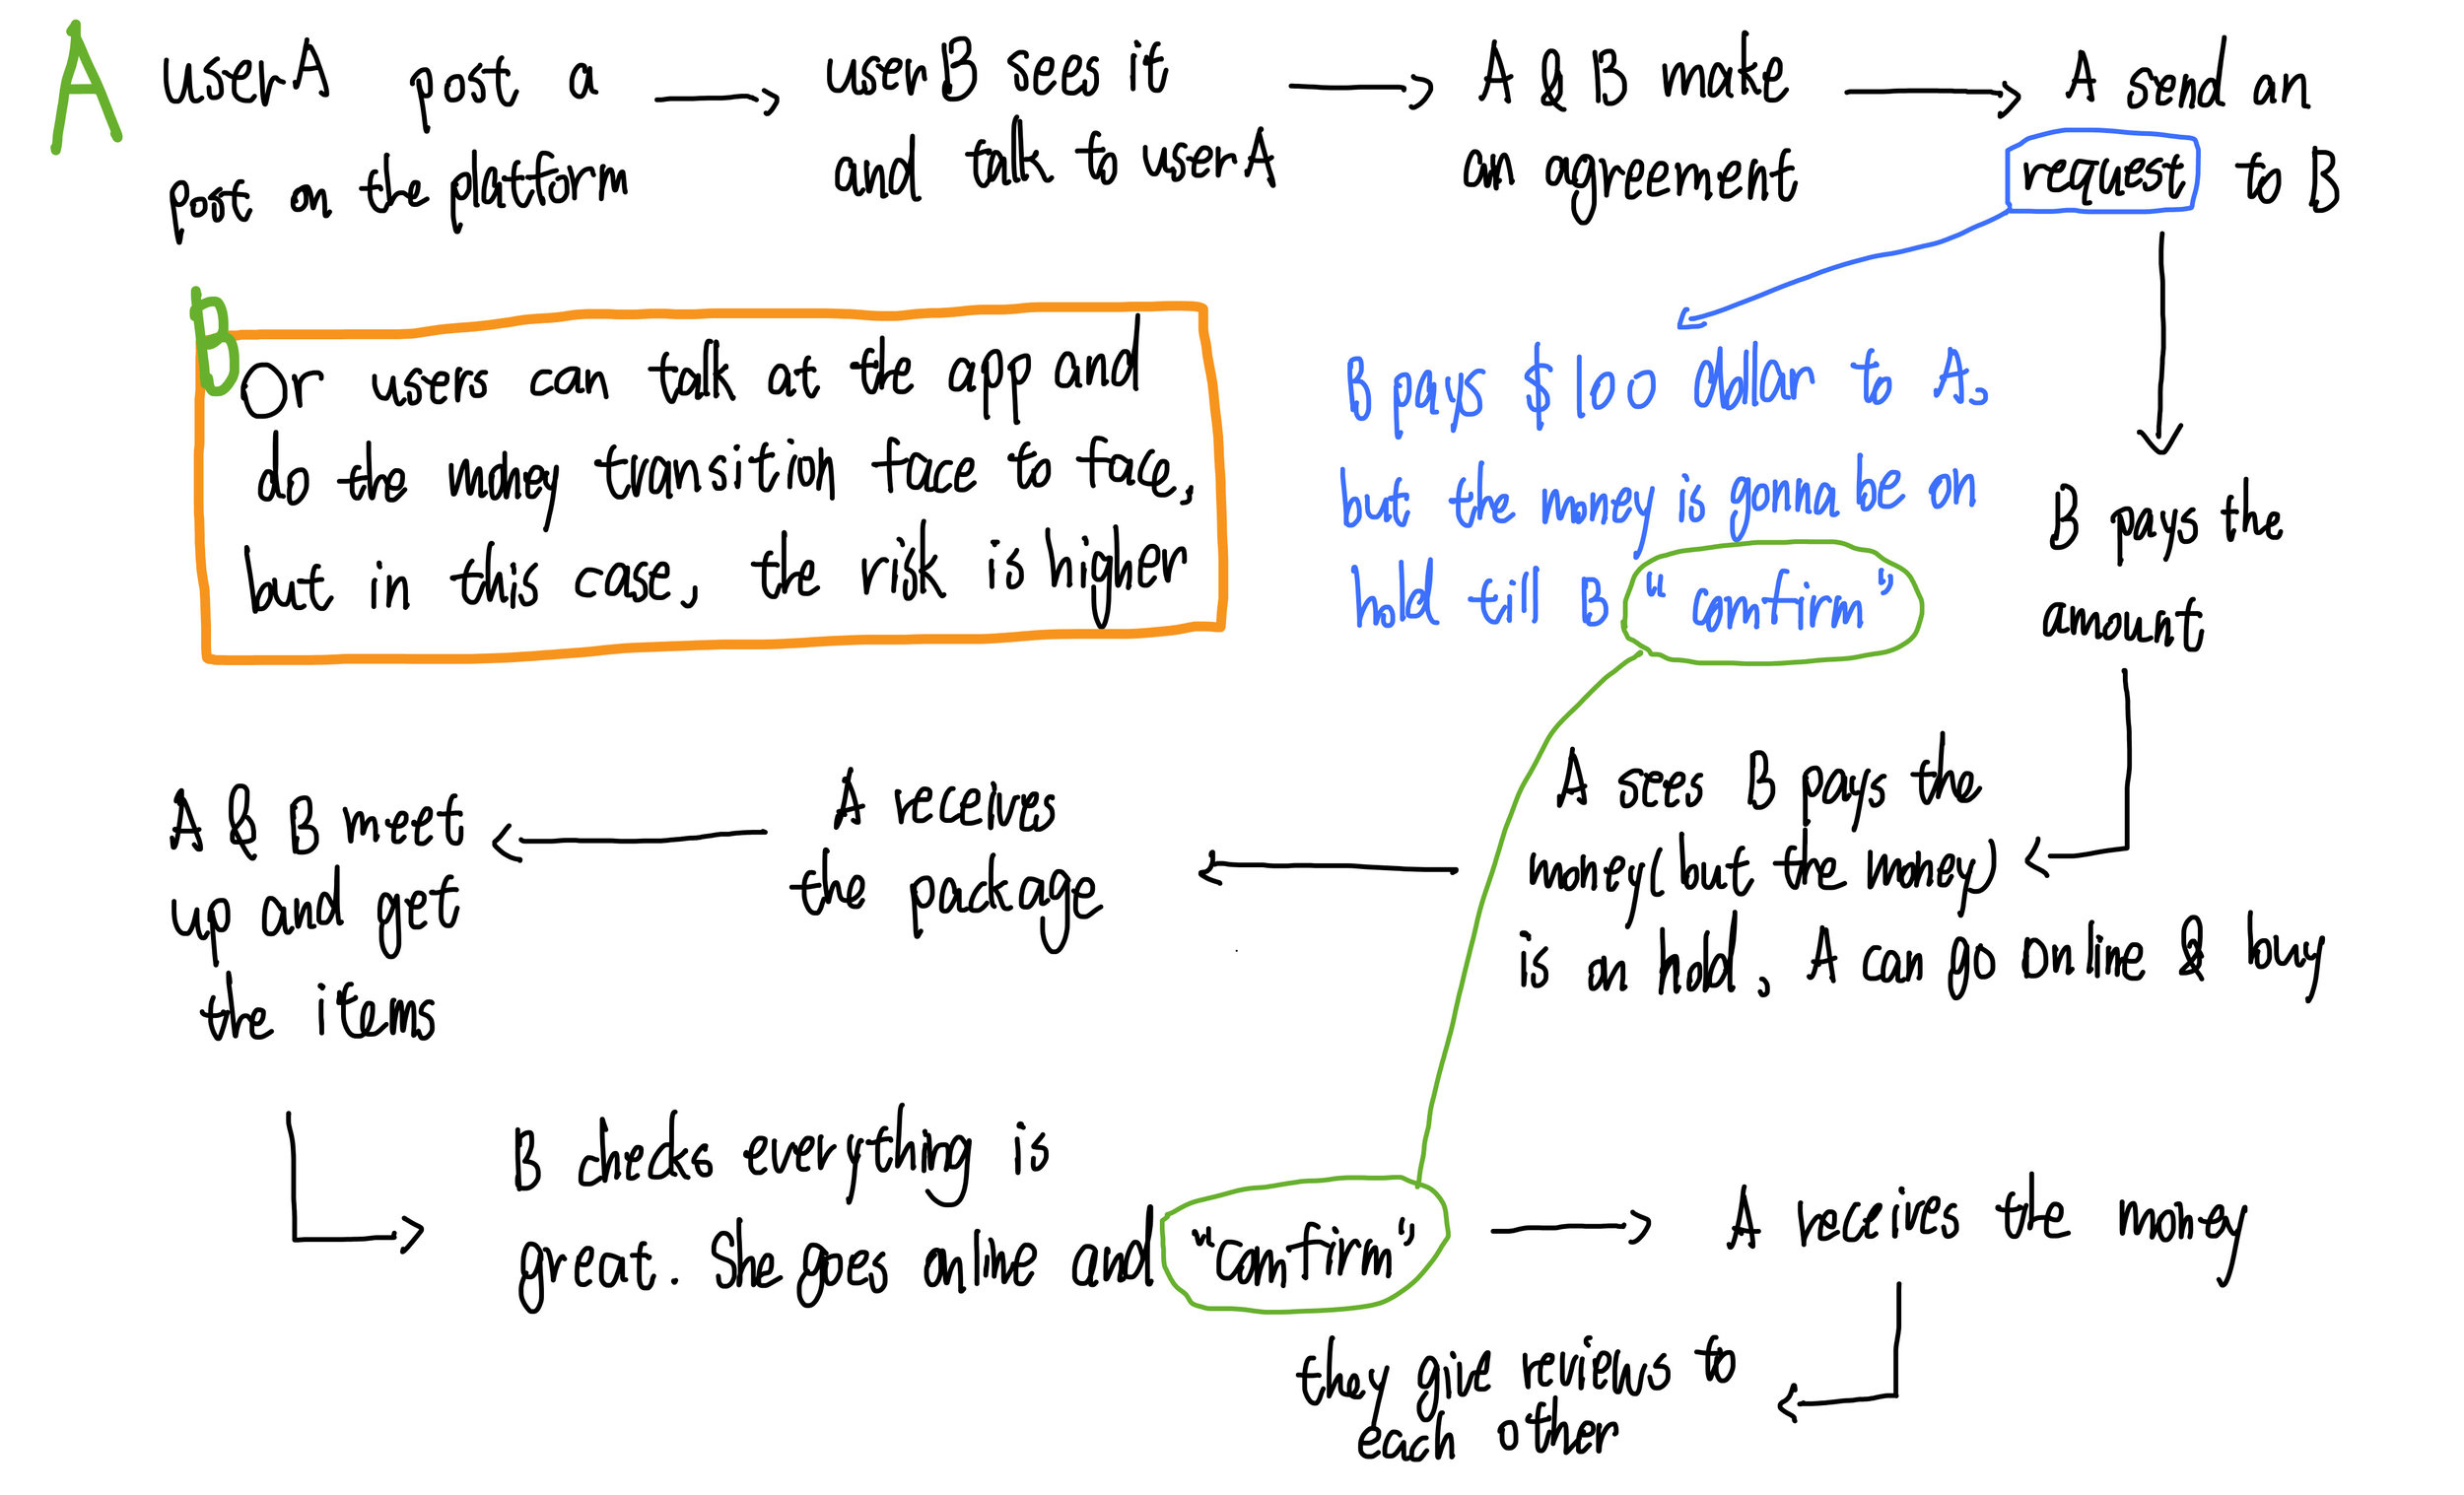 A
user A post a
post on the platform
user B sees it
and talk to user A
A & B make
an agreement
A send an
request to B
B
Or users can talk at the app and
do the money transition face to face,
but in this case, the risk is higher
B pays $100 dollar to A,
but the money is gonna be on
hold till B "comfirm"
B pays the
amount
A sees B pays the
money (but the money)
is on hold, A can go online & buy
A receives
the package
A & B meet
up and get
the items
B checks everything is
great. She goes online and "comfirm"
A receives the money
they give reviews to
each other